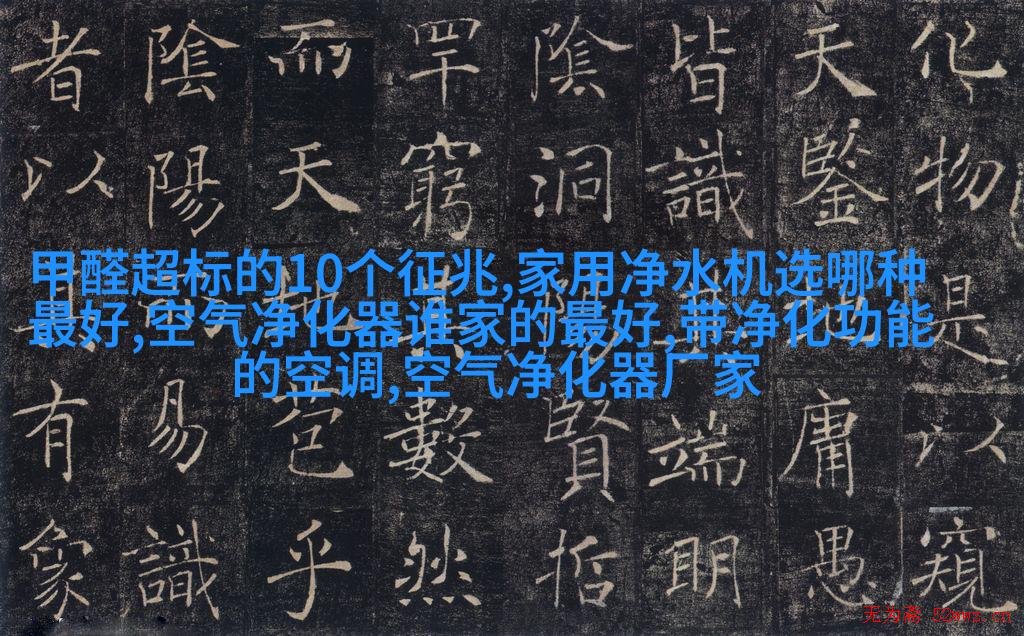 化物是以窺
天鑒地庸愚
皆識其端明
陰洞陽賢哲
罕窮其數然
而天地包乎
陰陽而易識
者以其有象
甲醛超标的10个征兆,家用净水机选哪种
最好,空气净化器谁家的最好,带净化功能
的空调,空气净化器厂家
无为斋 52wwz.cn